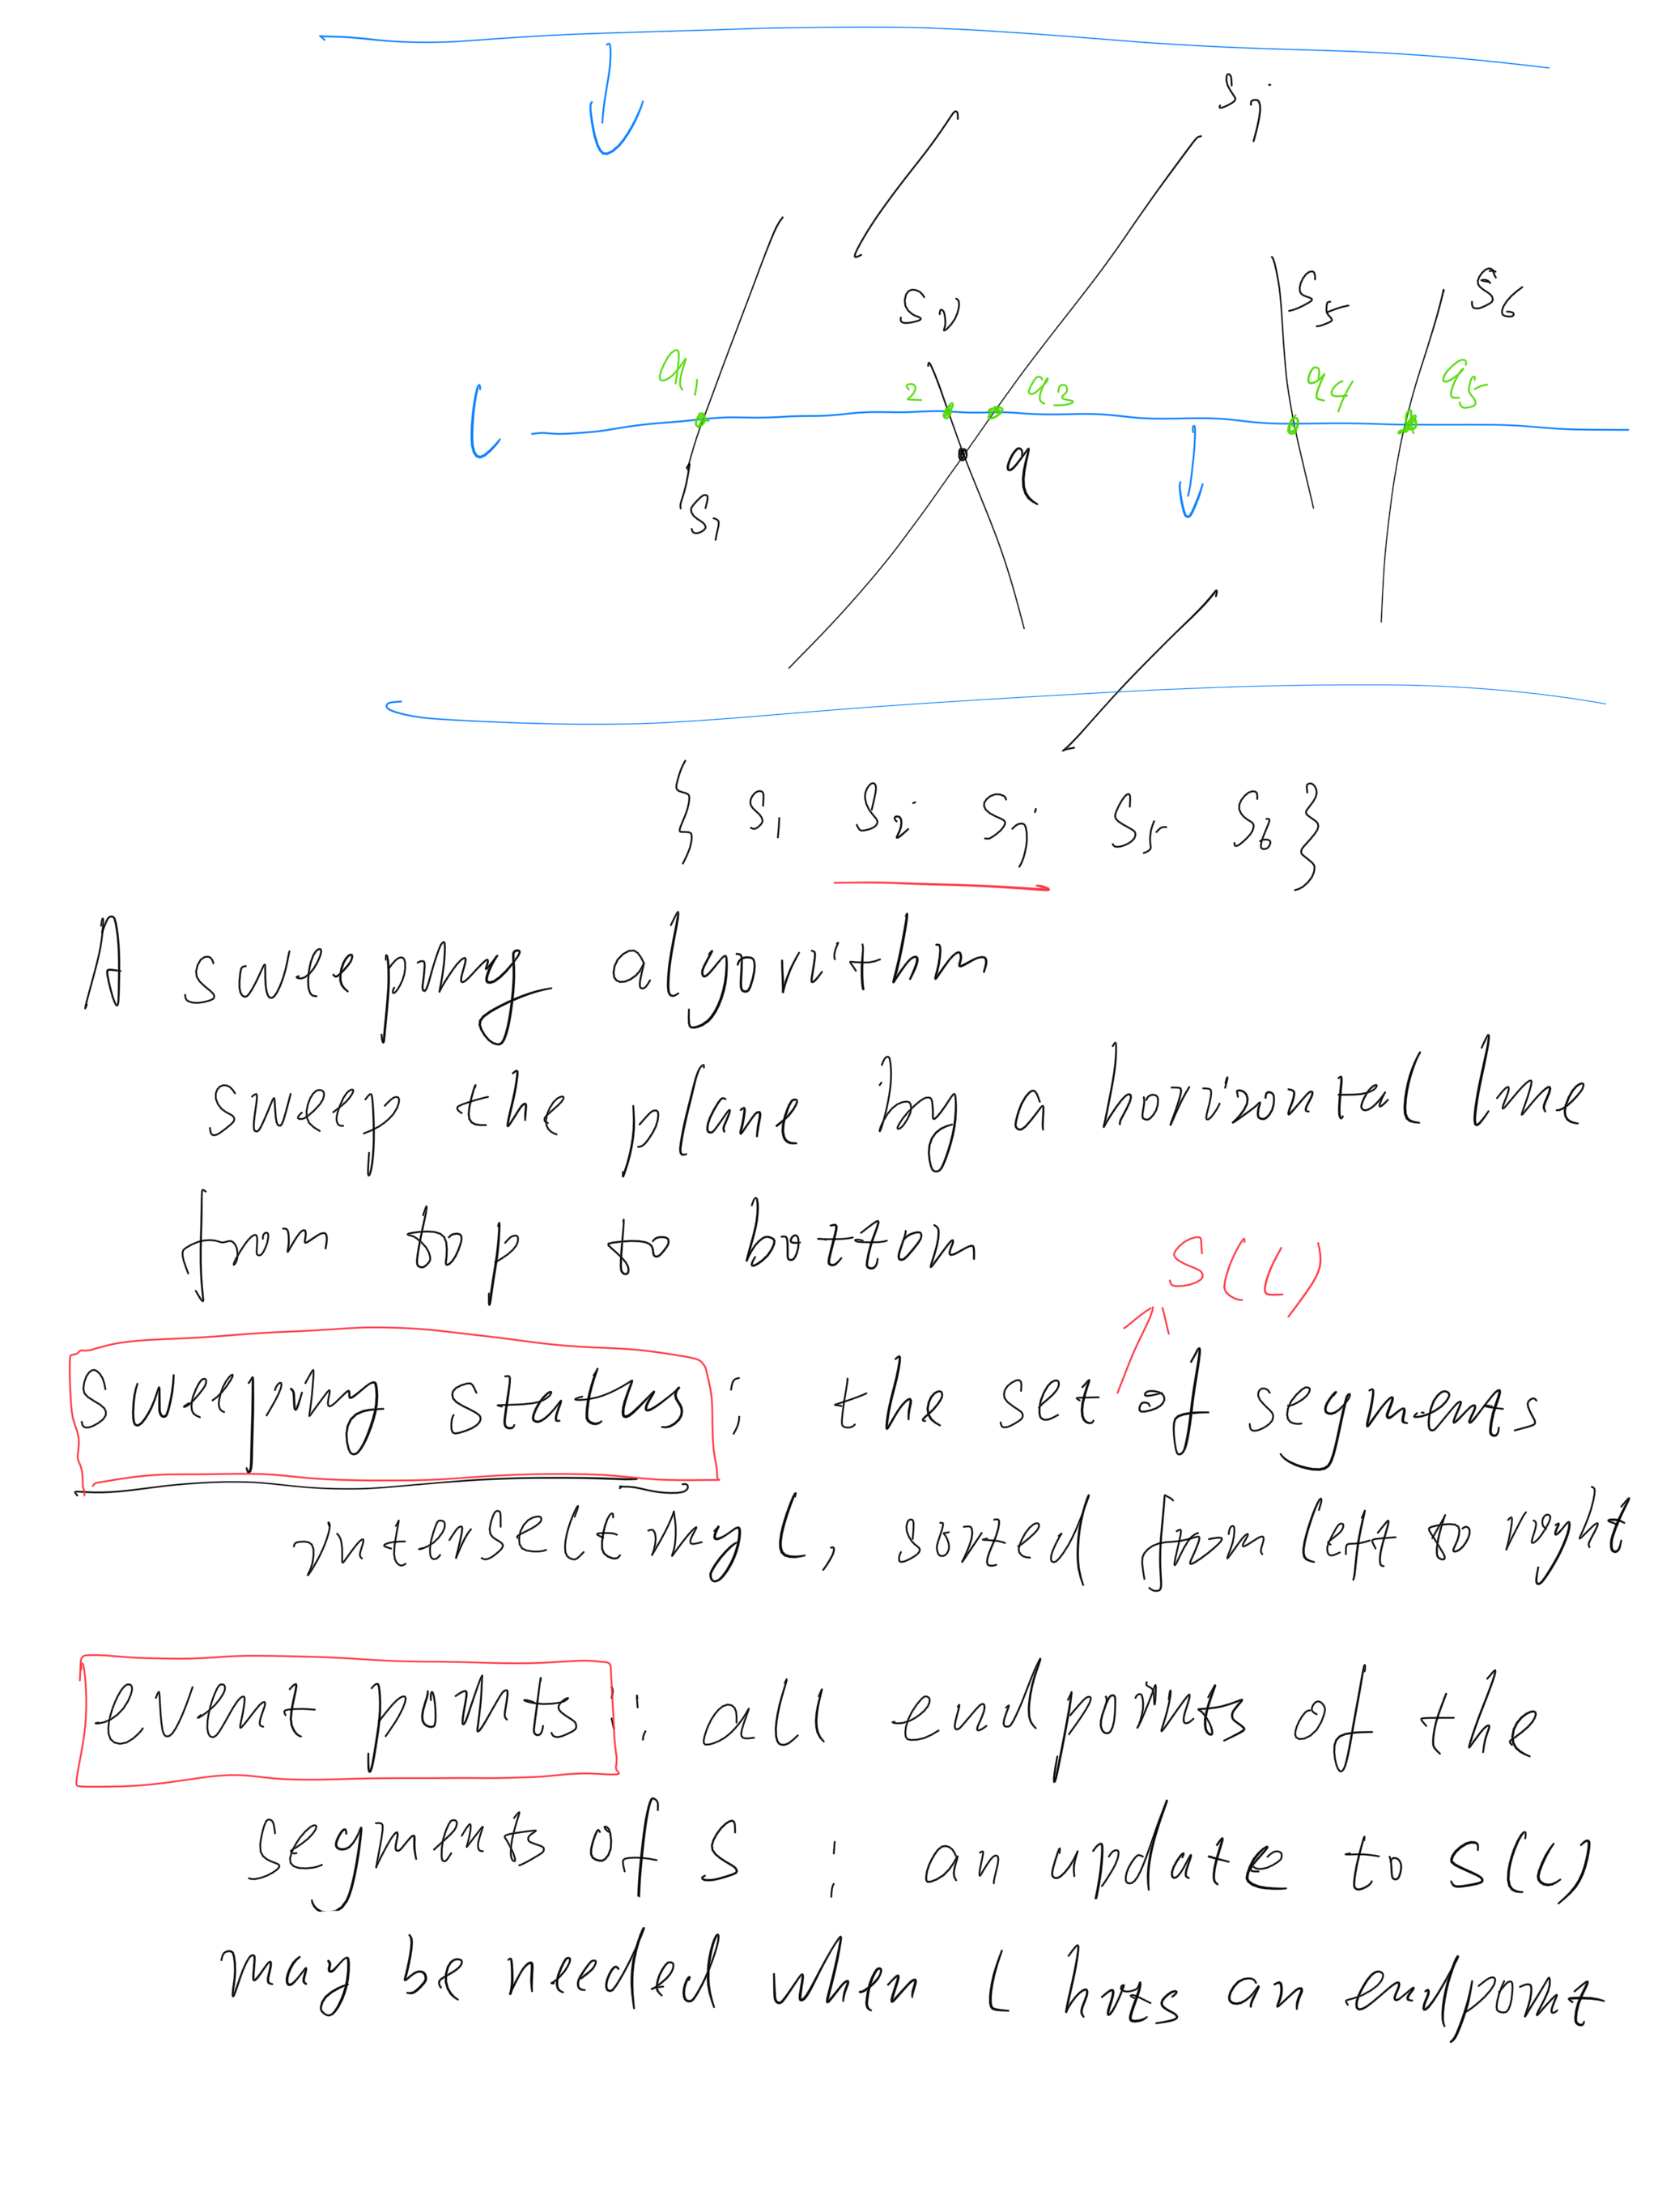 Sj
Si
S5
S6
a1
2
a3
a4
a5
L
q
S1
{ S1 Si Sj S5 S6 }
A sweeping algorithm
sweep the plane by a horizontal line
from top to bottom
S(L)
sweeping status : the set of segments
intersecting L, sorted from left to right
event points : all endpoints of the
segments of S ; an update to S(L)
may be needed when L hits an endpoint